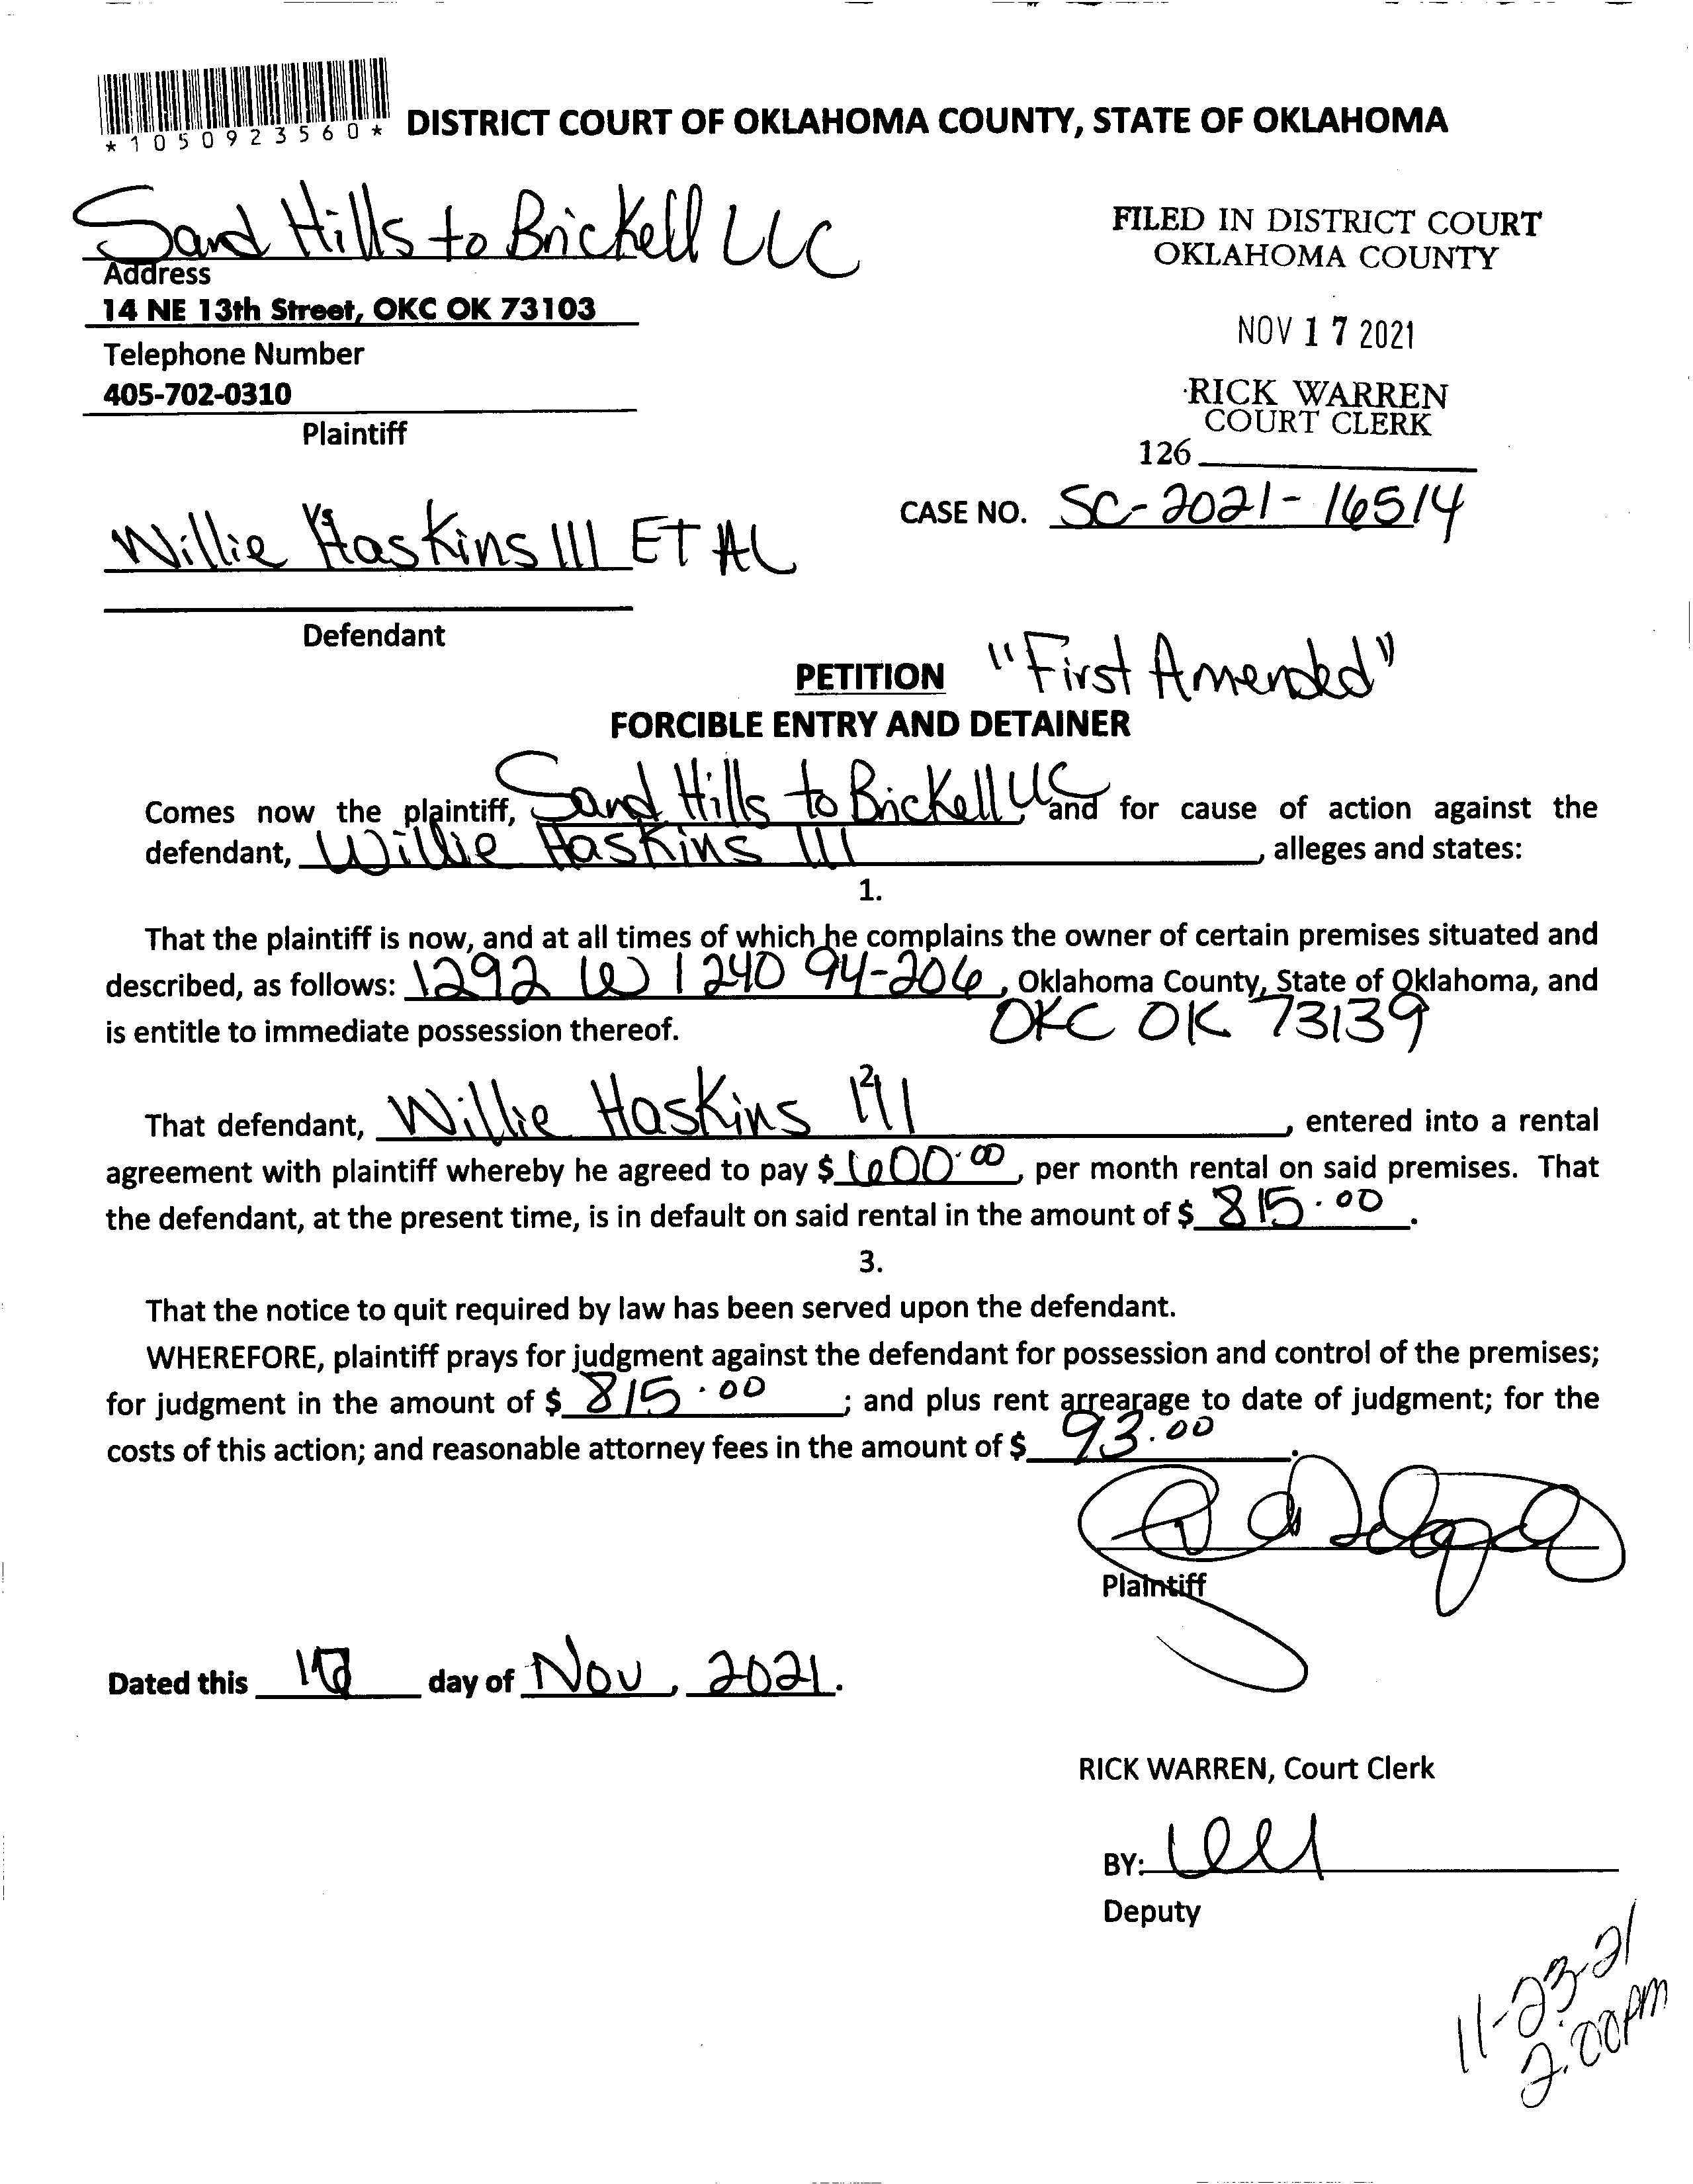 *1050923560*
DISTRICT COURT OF OKLAHOMA COUNTY, STATE OF OKLAHOMA
Sand Hills to Brickell LLC
Address
14 NE 13th Street, OKC OK 73103
Telephone Number
405-702-0310
Plaintiff
FILED IN DISTRICT COURT
OKLAHOMA COUNTY
NOV 17 2021
RICK WARREN
COURT CLERK
126
CASE NO. SC-2021-16514
vs
Willie Haskins III ET AL
Defendant
PETITION "First Amended"
FORCIBLE ENTRY AND DETAINER
Comes now the plaintiff, Sand Hills to Brickell LLC and for cause of action against the
defendant, Willie Haskins III, alleges and states:
1.
That the plaintiff is now, and at all times of which he complains the owner of certain premises situated and
described, as follows: 1292 W I 240 94-206, Oklahoma County, State of Oklahoma, and
is entitle to immediate possession thereof. OKC OK 73139
2.
That defendant, Willie Haskins III, entered into a rental
agreement with plaintiff whereby he agreed to pay $ 600.00, per month rental on said premises. That
the defendant, at the present time, is in default on said rental in the amount of $ 815.00.
3.
That the notice to quit required by law has been served upon the defendant.
WHEREFORE, plaintiff prays for judgment against the defendant for possession and control of the premises;
for judgment in the amount of $ 815.00; and plus rent arrearage to date of judgment; for the
costs of this action; and reasonable attorney fees in the amount of $ 93.00.
Plaintiff
Dated this day of Nov, 2021.
RICK WARREN, Court Clerk
BY:
Deputy
11-23-21
2:00pm